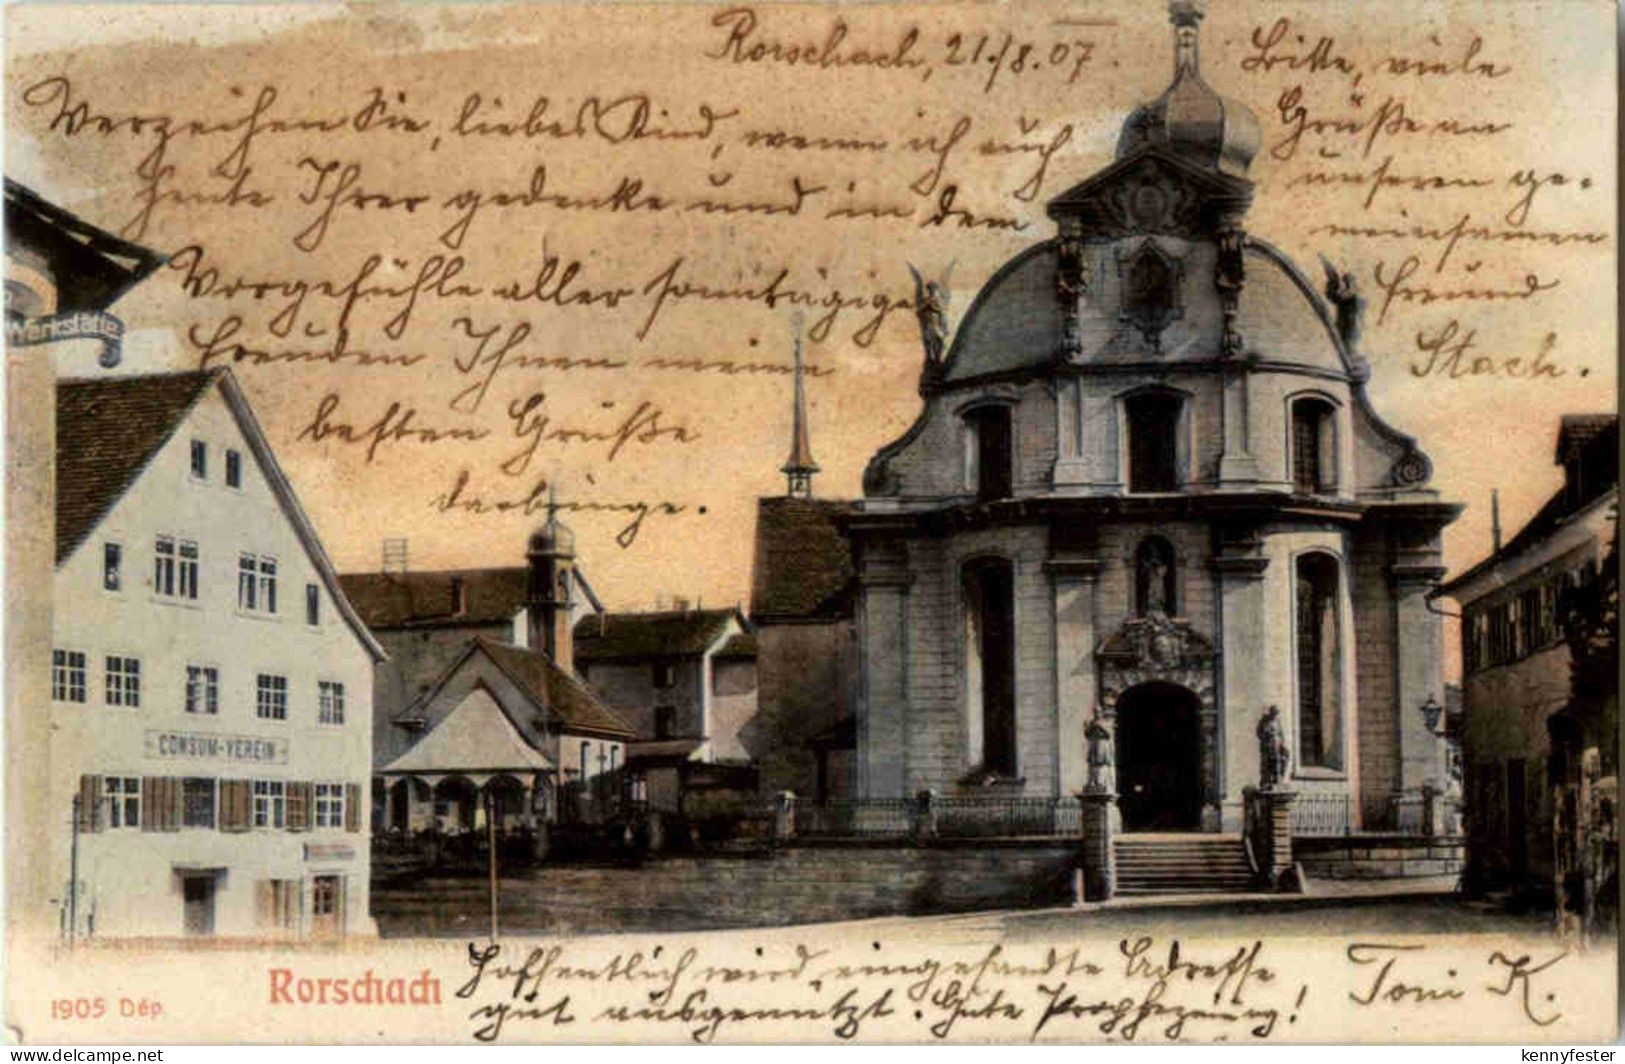 Rorschach, 21./8.07.
Verzeihen Sie, liebes Kind, wenn ich auch
heute Ihrer gedenke und in dem
Vorgefühle aller sonntägige
Freuden Ihnen meine
besten Grüße
darbringe.
Bitte, viele
Grüße an
unseren ge-
meinsamen
Freund
Stach.
Werkstätte
CONSUM-VEREIN
Hoffentlich wird eingesandte Adresse
gut ausgenützt. Gute Prophezeiung!
Toni K.
Rorschach
1905 Dép.
www.delcampe.net
kennyfester